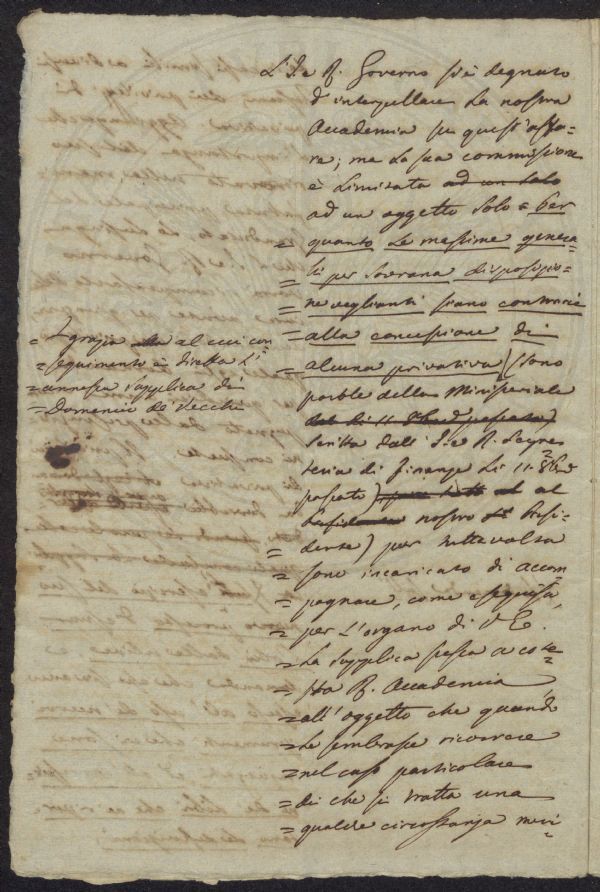 L'I. e R. Governo si è degnato
d'interpellare la nostra
Accademia su quest'affa-
re; ma la sua commissione
è limitata ad un solo
ad un oggetto solo = Per
= quanto le massime genera-
= li per Sovrana disposizio-
= ne veglianti siano contrarie
= alla concessione di
= alcuna privativa (sono
parole della Ministeriale
scritta dall' I. e R. Segre-
teria di Finanze li 11. 8bre
passato) al
nostro Presi-
= dente) per tutta volta
= sono incaricato di accom
= pagnare, come eseguisco,
= per l'organo di V. E.
= la supplica stessa a cote-
= sta R. Accademia
= all'oggetto che quando
= le sembrasse ricorrere
= nel caso particolare
= di che si tratta una
= qualche circostanza meri-
= grazia al cui con
= seguimento è diretta l'
= annessa supplica di
= Domenico de' Vecchi